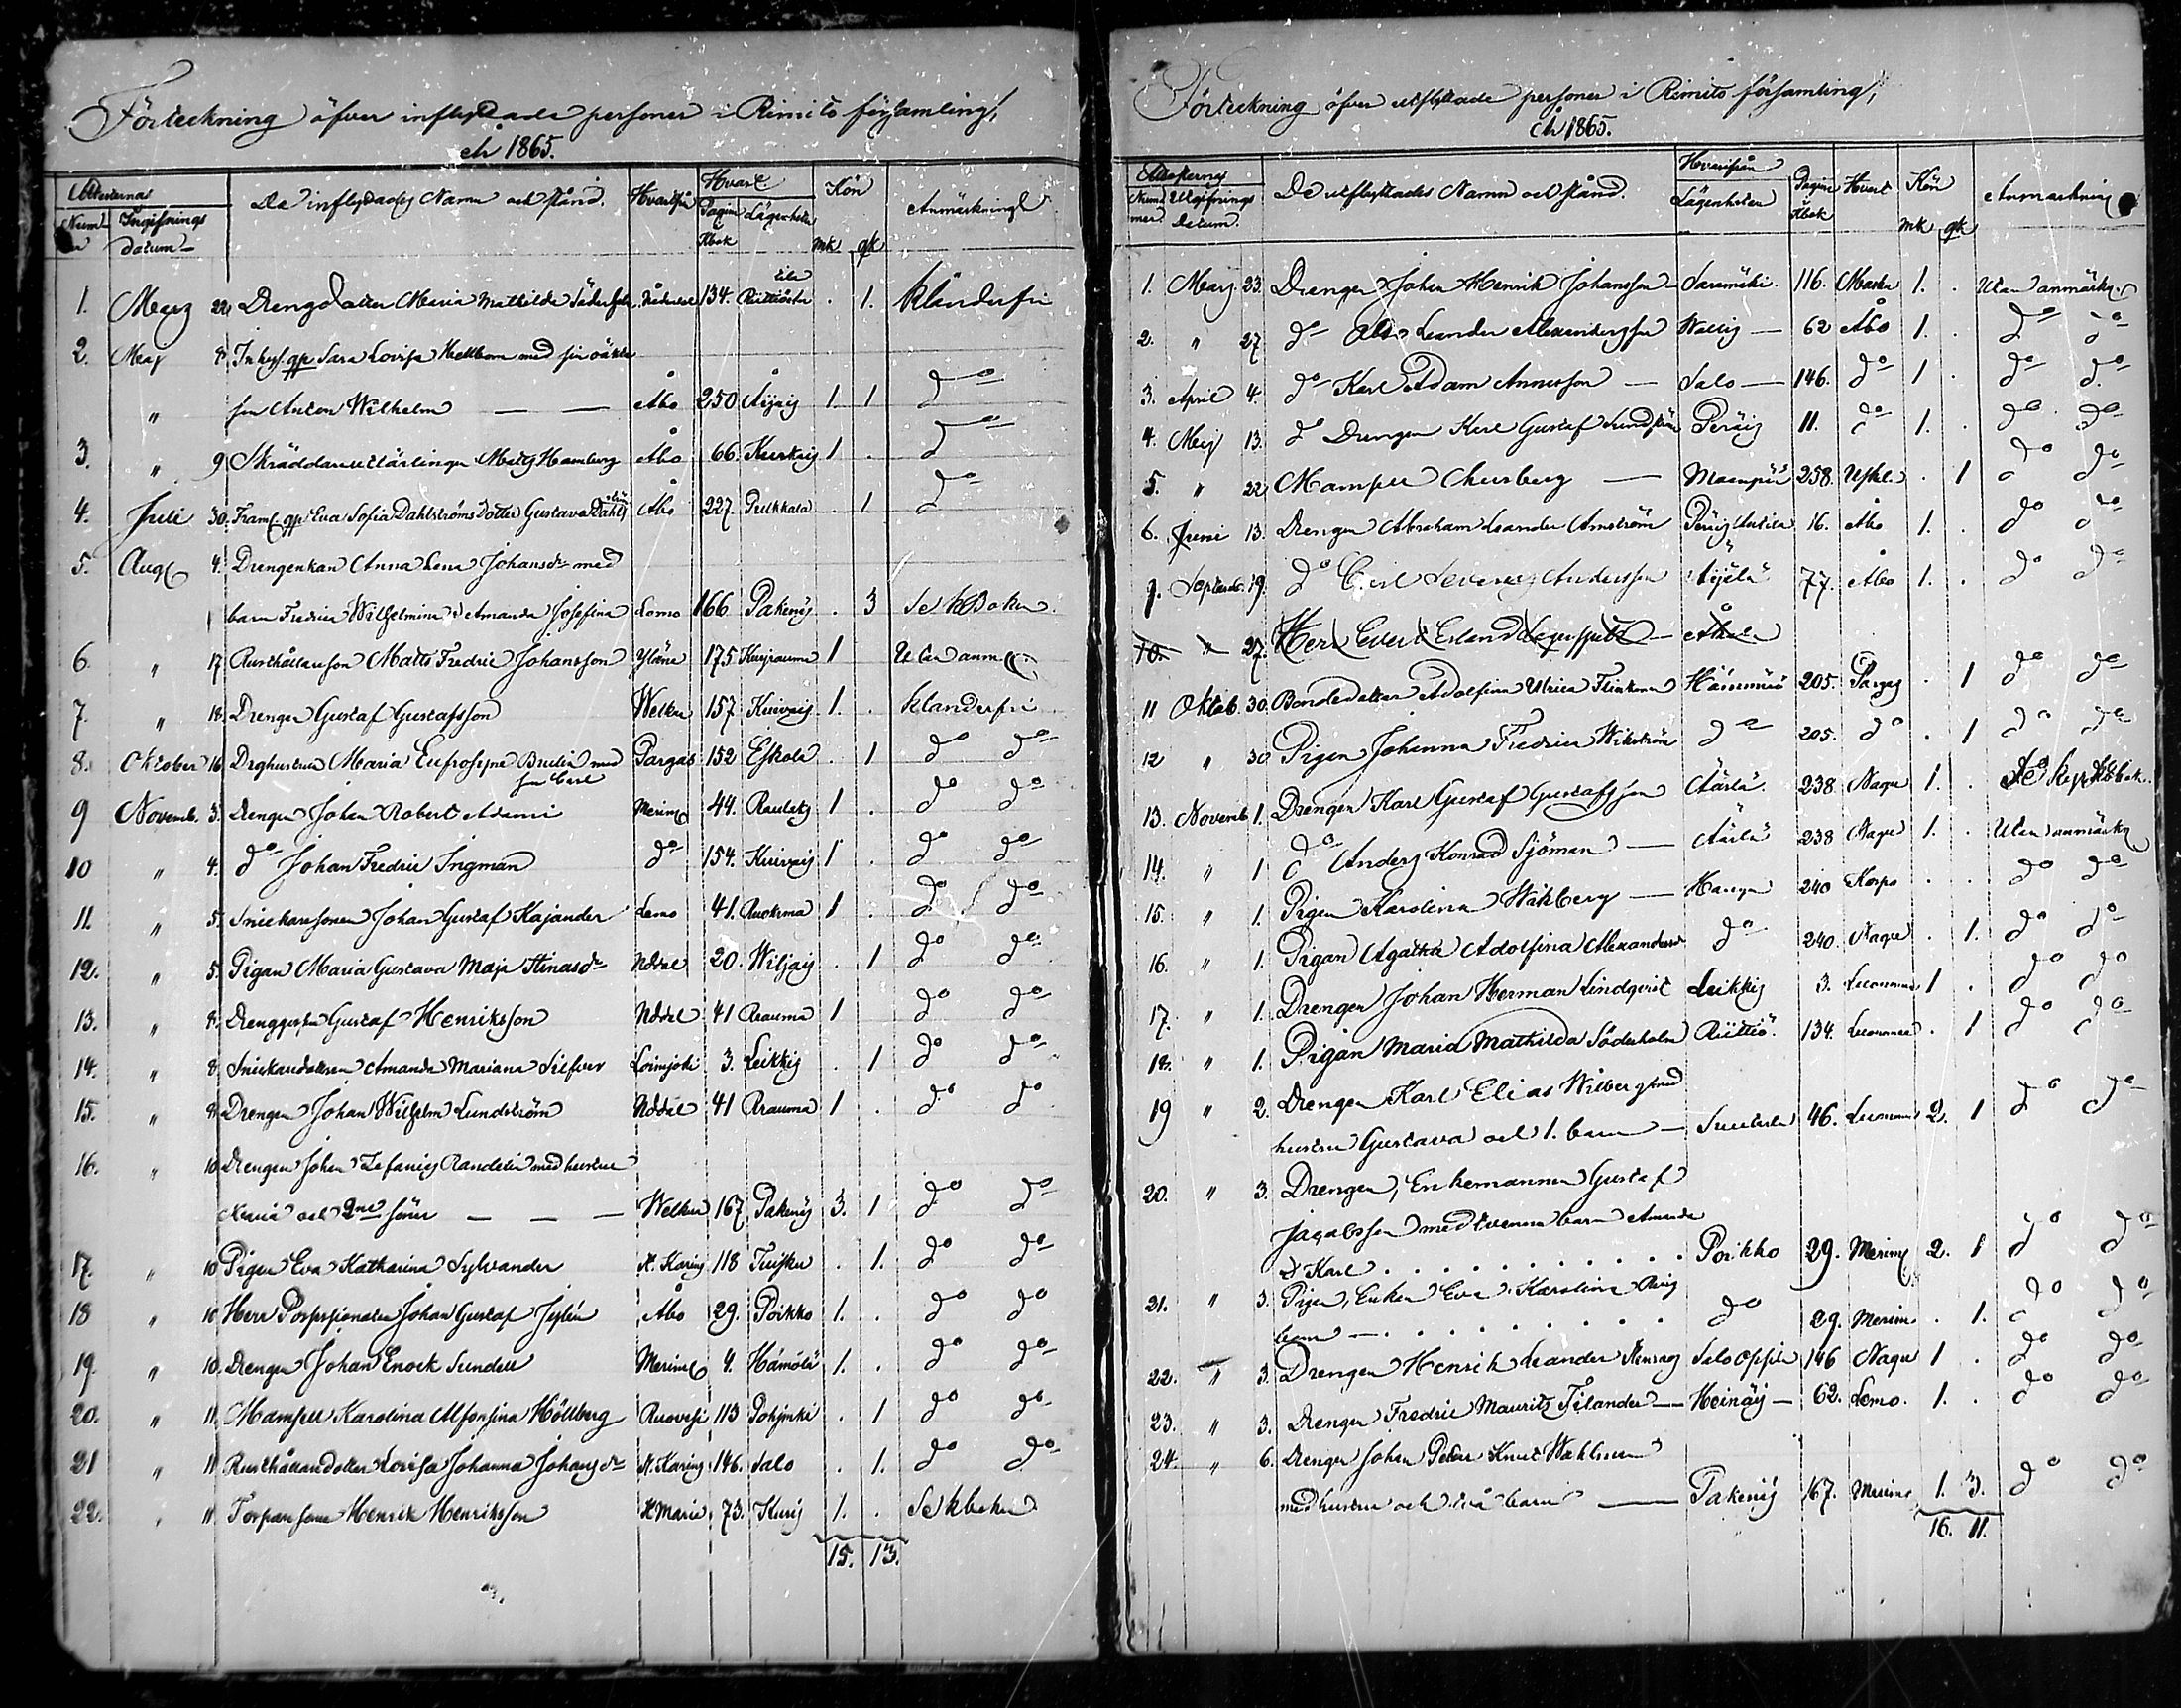 Förteckning öfver inflyttade personer i Rimito församling,
år 1865.
Attesternas
De inflyttades Namn och stånd.
Hvarifrån
Hvart
Kön
Anmärkning
Num
Ingifnings datum
Pagina Kbok
Lägenheten
mk
qk
1. Mars 22 Drengdottren Maria Mathilda Söderholm 134. . 1. Klanderfri
2. Maj 8. Inhys. qp Sara Lovisa Hellbom med sin oäkta
" son Anton Wilhelm — — Åbo 250 Äijäis 1 1 do
3. " 9 Skräddarelärlingen Matts Hamberg Åbo 66. Kurkais 1 . do
4. Juli 30. qp Eva Sofia Dahlströms Dotter Gustava Dahlström Åbo 227. Pulkkala . 1 do
5. Aug. 4. Drengenkan Anna Lena Johansdr med
barn Fredrica Wilhelmina & Amanda Josefina Lemo 166. Pakinis . 3 Se KBoken
6 " 17 Rusthållareson Matts Fredric Johansson Yläne 175 1 Utan anm.
7. " 18. Drengen Gustaf Gustafsson Welkua 157 Kuivais 1. . Klanderfri
8. Oktober 16 Drghustrun Maria Eufrosyne med son Carl Pargas 152 Eskola . 1 do do
9 Novemb. 3. Drengen Johan Robert Adami Merim. 44. 1 . do do
10 " 4. do Johan Fredric Ingman do 154. Kuivais 1 . do do
11. " 5. Snickaresonen Johan Gustaf Kajander Lemo 41. 1 . do do
12. " 5. Pigan Maria Gustava Maja Stinasdr Nådal 20. Wiljais . 1 do do
13. " 8. Drenggossen Gustaf Henriksson Nådal 41 Rauma 1 do do
14. " 8. Snickaredottren Amanda Mariana Silfver Loimjoki 3. Leikkis . 1 do do
15. " 8. Drengen Johan Wilhelm Lundström Nådal 41 Rauma 1 . do do
16. " 10. Drengen Johan Zefanias Randelin med hustru
Maria och 2ne söner — — — Welkua 167 Pakinis 3. 1 do do
17. " 10 Pigan Eva Katharina Sylvander St. Karins 118 . 1. do do
18 " 10 Herr Possessionaten Johan Gustaf Åbo 29. Poikko 1. . do do
19. " 10. Drengen Johan Enock Sundell Merim. 4. Hämölä 1. . do do
20. " 11. Mamsell Karolina Alfonsina Höllberg Ruovesi 113 . 1 do do
21 " 11 Rusthållaredotter Lovisa Johanna Johansdr St. Karins 146. Salo . 1. do do
22. " 11 Torparesonen Henrik Henriksson St Marie 73. 1. . Se kboken
15. 13.
Förteckning öfver utflyttade personer i Rimito församling,
år 1865.
Attesternas
De utflyttades Namn och stånd.
Hvarifrån
Pagina Kbok
Hvart
Kön
Anmärkning
Nummer
Utgifnings Datum.
Lägenheten
mk
qk
1. Mars 23. Drengen Johan Henrik Johansson — Saramäki. 116. Masku 1. . Utan anmärkn.
2. " 27 do Leander Alexandersson — 62 Åbo 1. . do do
3. April 4. do Karl Adam Andersson — Salo — 146. do 1 . do do
4. Maj 13. do Drengen Karl Gustaf Lundström Peräis 11. do 1. . do do
5. " 22 Mamsell — 258. . 1 do do
6. Juni 13. Drengen Abraham Leander Arnström Peräis Antila 16. Åbo 1. . do do
7. Septemb. 19. do Carl Severus Andersson Äijälä 77. Åbo 1. . do do
10. " 27. Herr Evert Erland —
11 Oktob. 30. Bondedottren Adolfina Ulrica 205. Pargas . 1 do do
12 " 30 Pigan Johanna Fredrica Wikström do 205. do . 1 do do
13. Novemb. 1. Drengen Karl Gustaf Gustafsson Äärlä 238. Nagu 1. . Se Kbok.
14. " 1 do Anders Konrad Sjöman — Äärlä 238 Nagu 1. . Utan anmärkn
15. " 1. Pigan Karolina Wikberg — 240 Korpo . . do do
16. " 1. Pigan Agatha Adolfina Alexandersdr do 240. Nagu . 1. do do
17. " 1. Drengen Johan Herman Lindqvist Leikkis 3. 1 . do do
18. " 1. Pigan Maria Mathilda Söderholm Riittiö 134. . 1 do do
19 " 2. Drengen Karl Elias Wilberg med
hustru Gustava och 1. barn — 46. 2. 1 do do
20. " 3. Drengen, Enkemannen Gustaf
Jacobsson med tvenne barn Amanda
& Karl . . . . . . . . . . Poikko 29. Merim. 2. 1 do do
21. " 3. Pigan, Enkan Eva Karolina
— . . . . . . . . . . do 29. Merim. . 1. do do
22. " 3. Drengen Henrik Leander Salo 146 Nagu 1 . do do
23. " 3. Drengen Fredric Maurits Filander — Heinäis — 62. Lemo. 1. . do do
24. " 6. Drengen Johan Peter Knut Wahlman
med hustru och två barn — Pakinis 167. Merim. 1. 3. do do
16. 11.